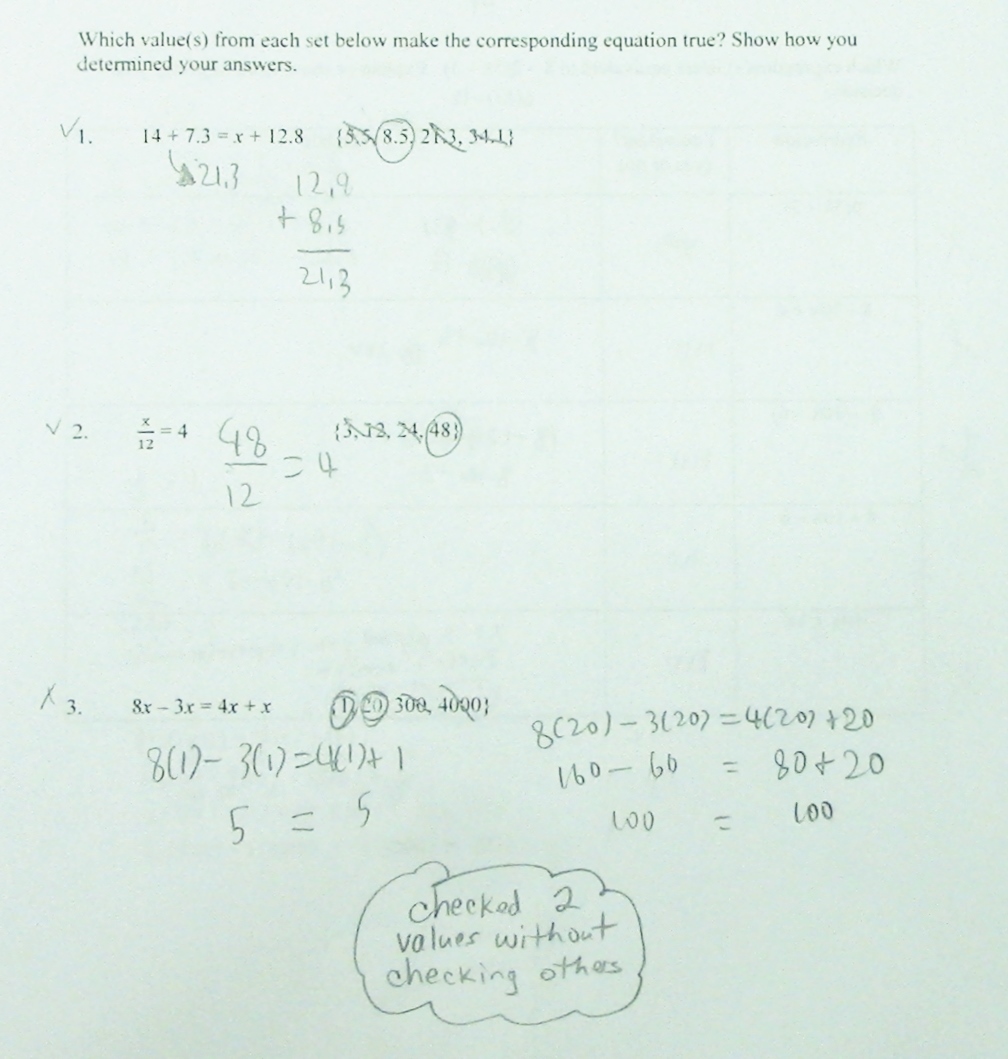 Which value(s) from each set below make the corresponding equation true? Show how you
determined your answers.
✓ 1. 14 + 7.3 = x + 12.8 {5.5, 8.5, 21.3, 34.1}
21.3
12.8
+ 8.5
21.3
✓ 2. x/12 = 4 {3, 12, 24, 48}
48/12 = 4
x 3. 8x – 3x = 4x + x {1, 20, 300, 4000}
8(1) - 3(1) = 4(1) + 1
5 = 5
8(20) - 3(20) = 4(20) + 20
160 - 60 = 80 + 20
100 = 100
checked 2
values without
checking others